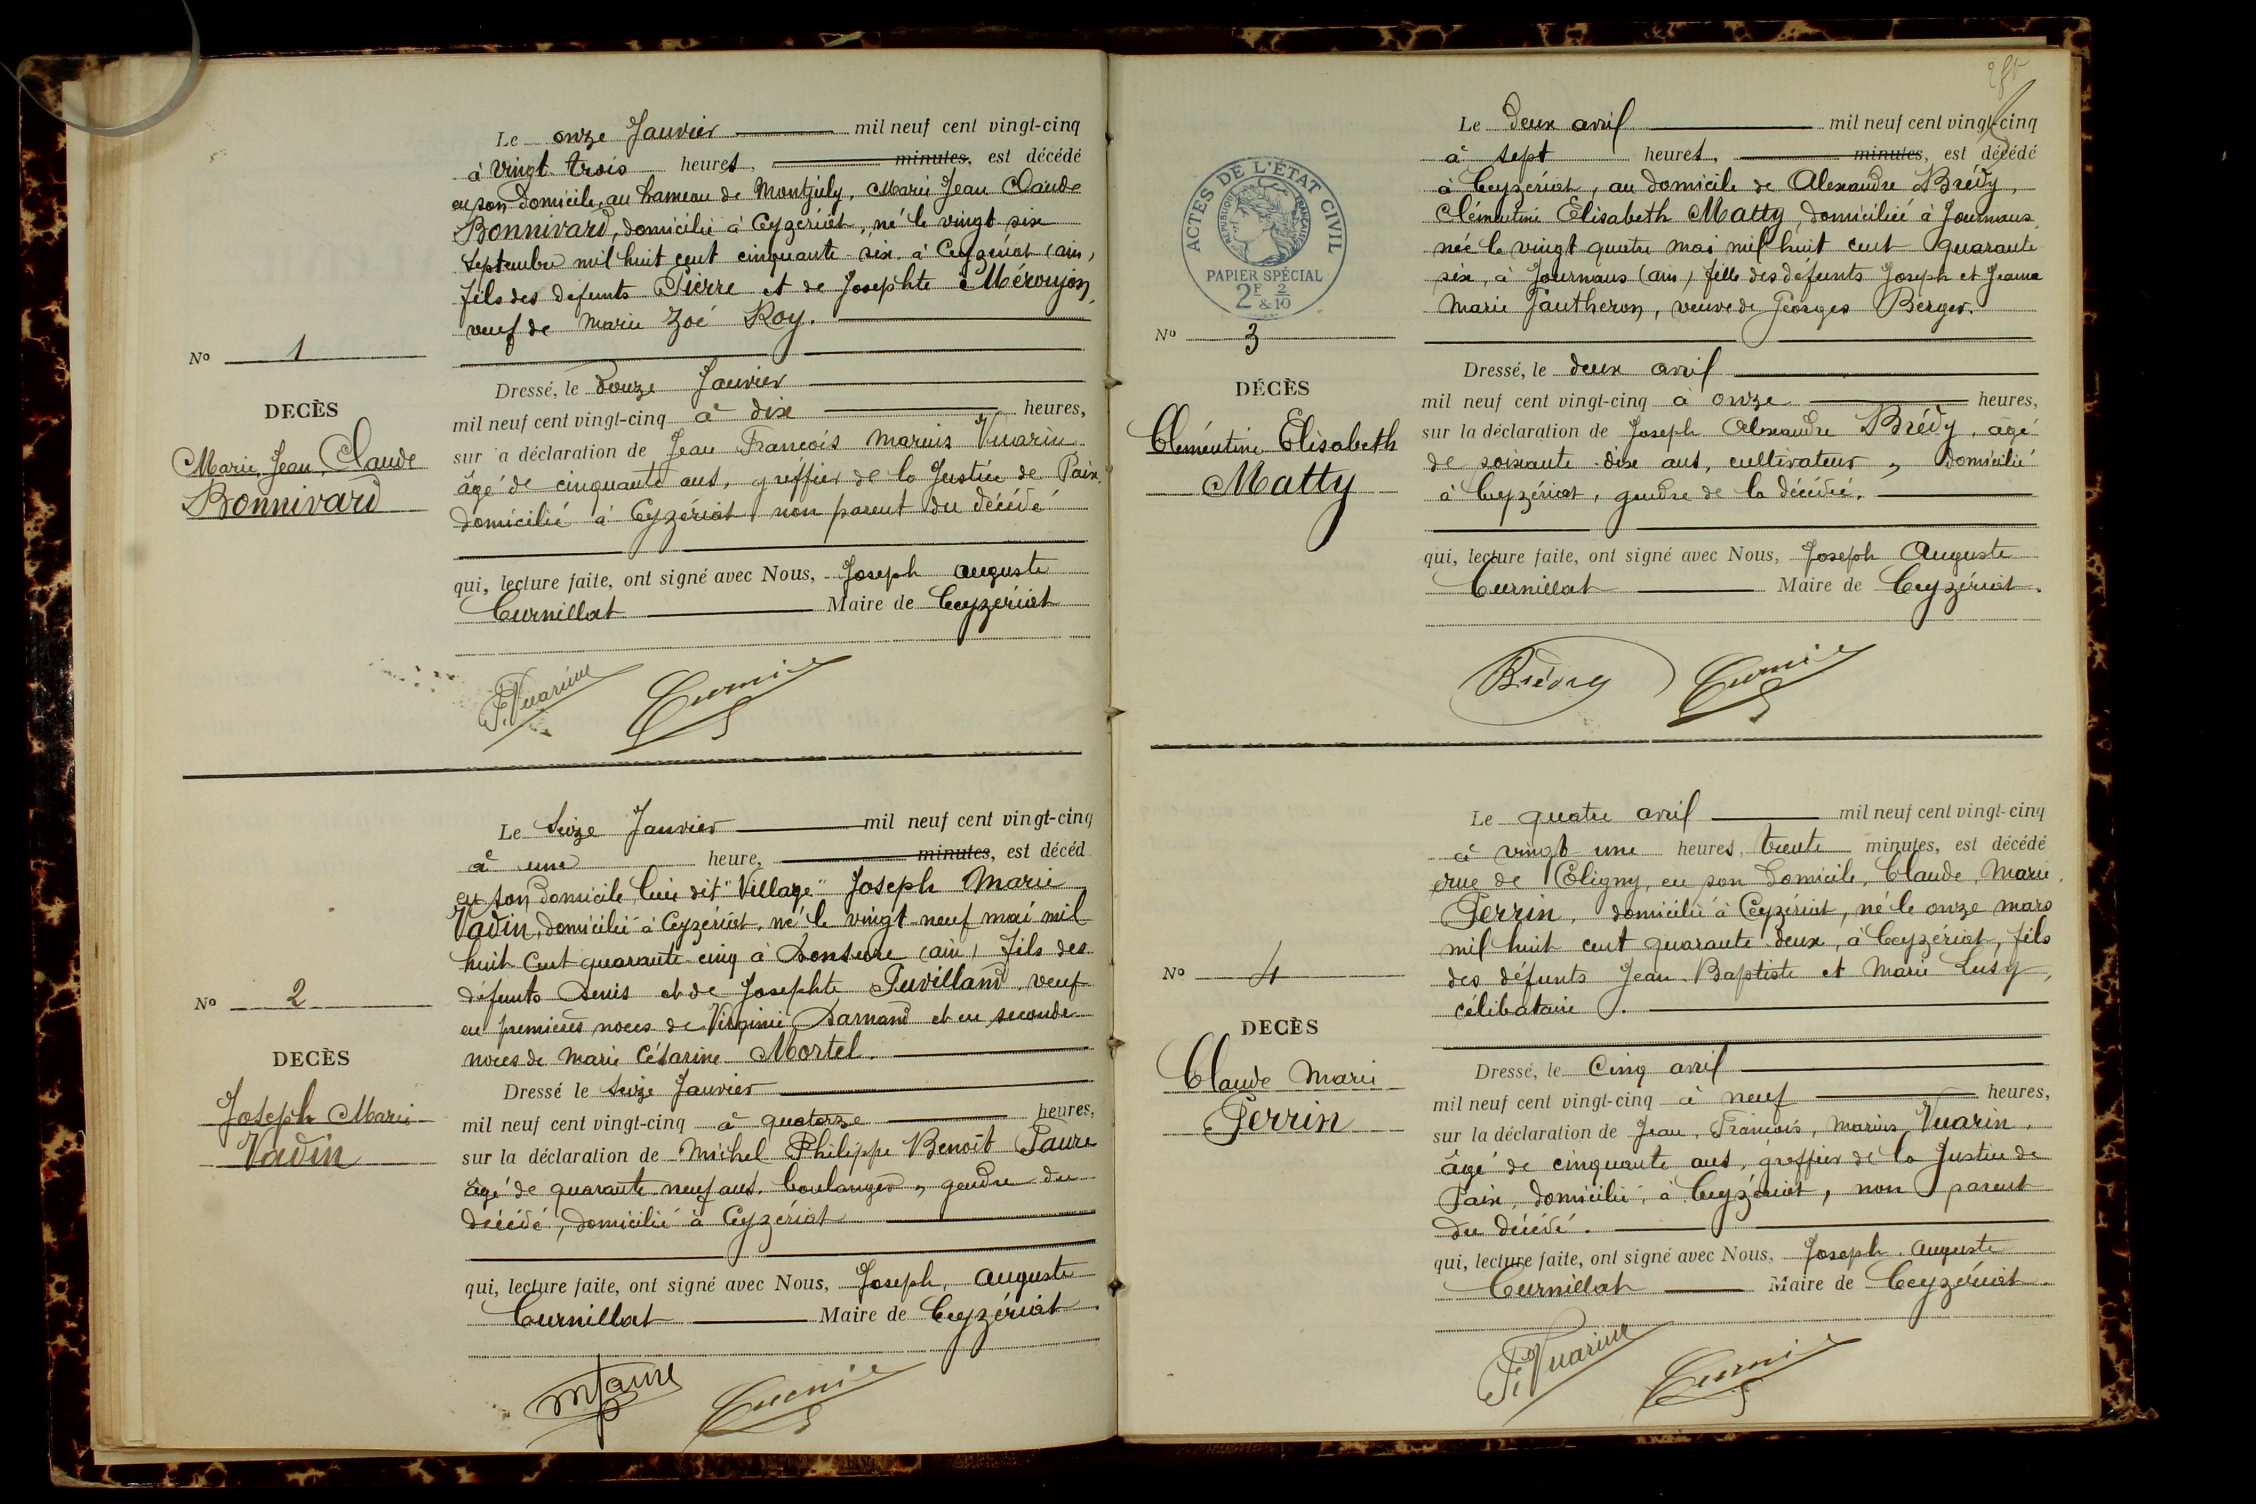 Le onze Janvier mil neuf cent vingt-cinq
à vingt trois heures, minutes, est décédé
en son domicile, au hameau de Montjuly, Marie Jean Claude
Bonnivard, domicilié à Ceyzériat, né le vingt six
septembre mil huit cent cinquante-six à Ceyzériat (ain)
fils des défunts Pierre et de Josephte Mérovjon,
veuf de Marie Zoé Roy.
No 1
DECÈS
Marie, Jean, Claude
Bonnivard
Dressé, le douze Janvier
mil neuf cent vingt-cinq à dix heures,
sur a déclaration de Jean François Marius Vuarin
âgé de cinquante ans, greffier de la Justice de Paix,
domicilié à Ceyzériat non parent du décédé
qui, lecture faite, ont signé avec Nous, Joseph Auguste
Curnillat Maire de Ceyzériat
F. Vuarin
Le seize Janvier mil neuf cent vingt-cinq
à une heure, minutes, est décéd
en son domicile, lieu dit "Village" Joseph Marie
Vadin, domicilié à Ceyzériat, né le vingt neuf mai mil
huit cent quarante-cinq à Domsure (ain) fils des
défunts Denis et de Josephte Puvilland, veuf
en premières noces de Virginie Darnand et en seconde
noces de Marie Césarine Mortel.
No 2
DECÈS
Joseph Marie
Vadin
Dressé le seize Janvier
mil neuf cent vingt-cinq à quatorze heures,
sur la déclaration de Michel Philippe Benoît Faure
âgé de quarante neuf ans, boulanger, gendre du
décédé, domicilié à Ceyzériat
qui, lecture faite, ont signé avec Nous, Joseph, Auguste
Curnillat Maire de Ceyzériat.
M Faure
ACTES DE L'ÉTAT CIVIL
RÉPUBLIQUE FRANÇAISE
PAPIER SPÉCIAL
2F & 2/10
Le deux avril mil neuf cent vingt-cinq
à sept heures, minutes, est décédé
à Ceyzériat, au domicile de Alexandre Brédy,
Clémentine Elisabeth Matty, domiciliée à Journans
née le vingt quatre mai mil huit cent quarante
six, à Journans (ain) fille des défunts Joseph et Jeanne
Marie Pautheron, veuve de Georges Berger.
No 3
DÉCÈS
Clémentine Elisabeth
Matty
Dressé, le deux avril
mil neuf cent vingt-cinq à onze heures,
sur la déclaration de Joseph Alexandre Brédy, âgé
de soixante-dix ans, cultivateur, domicilié
à Ceyzériat, gendre de la décédée.
qui, lecture faite, ont signé avec Nous, Joseph Auguste
Curnillat Maire de Ceyzériat.
Brédy
Le quatre avril mil neuf cent vingt-cinq
à vingt une heures, trente minutes, est décédé
rue de Coligny, en son domicile, Claude, Marie,
Perrin, domicilié à Ceyzériat, né le onze mars
mil huit cent quarante-deux, à Ceyzériat, fils
des défunts Jean-Baptiste et Marie Lusy,
célibataire.
No 4
DECÈS
Claude Marie
Perrin
Dressé, le Cinq avril
mil neuf cent vingt-cinq à neuf heures,
sur la déclaration de Jean, François, Marius Vuarin,
âgé de cinquante ans, greffier de la Justice de
Paix, domicilié, à Ceyzériat, non parent
du décédé.
qui, lecture faite, ont signé avec Nous, Joseph Auguste
Curnillat Maire de Ceyzériat.
F. Vuarin